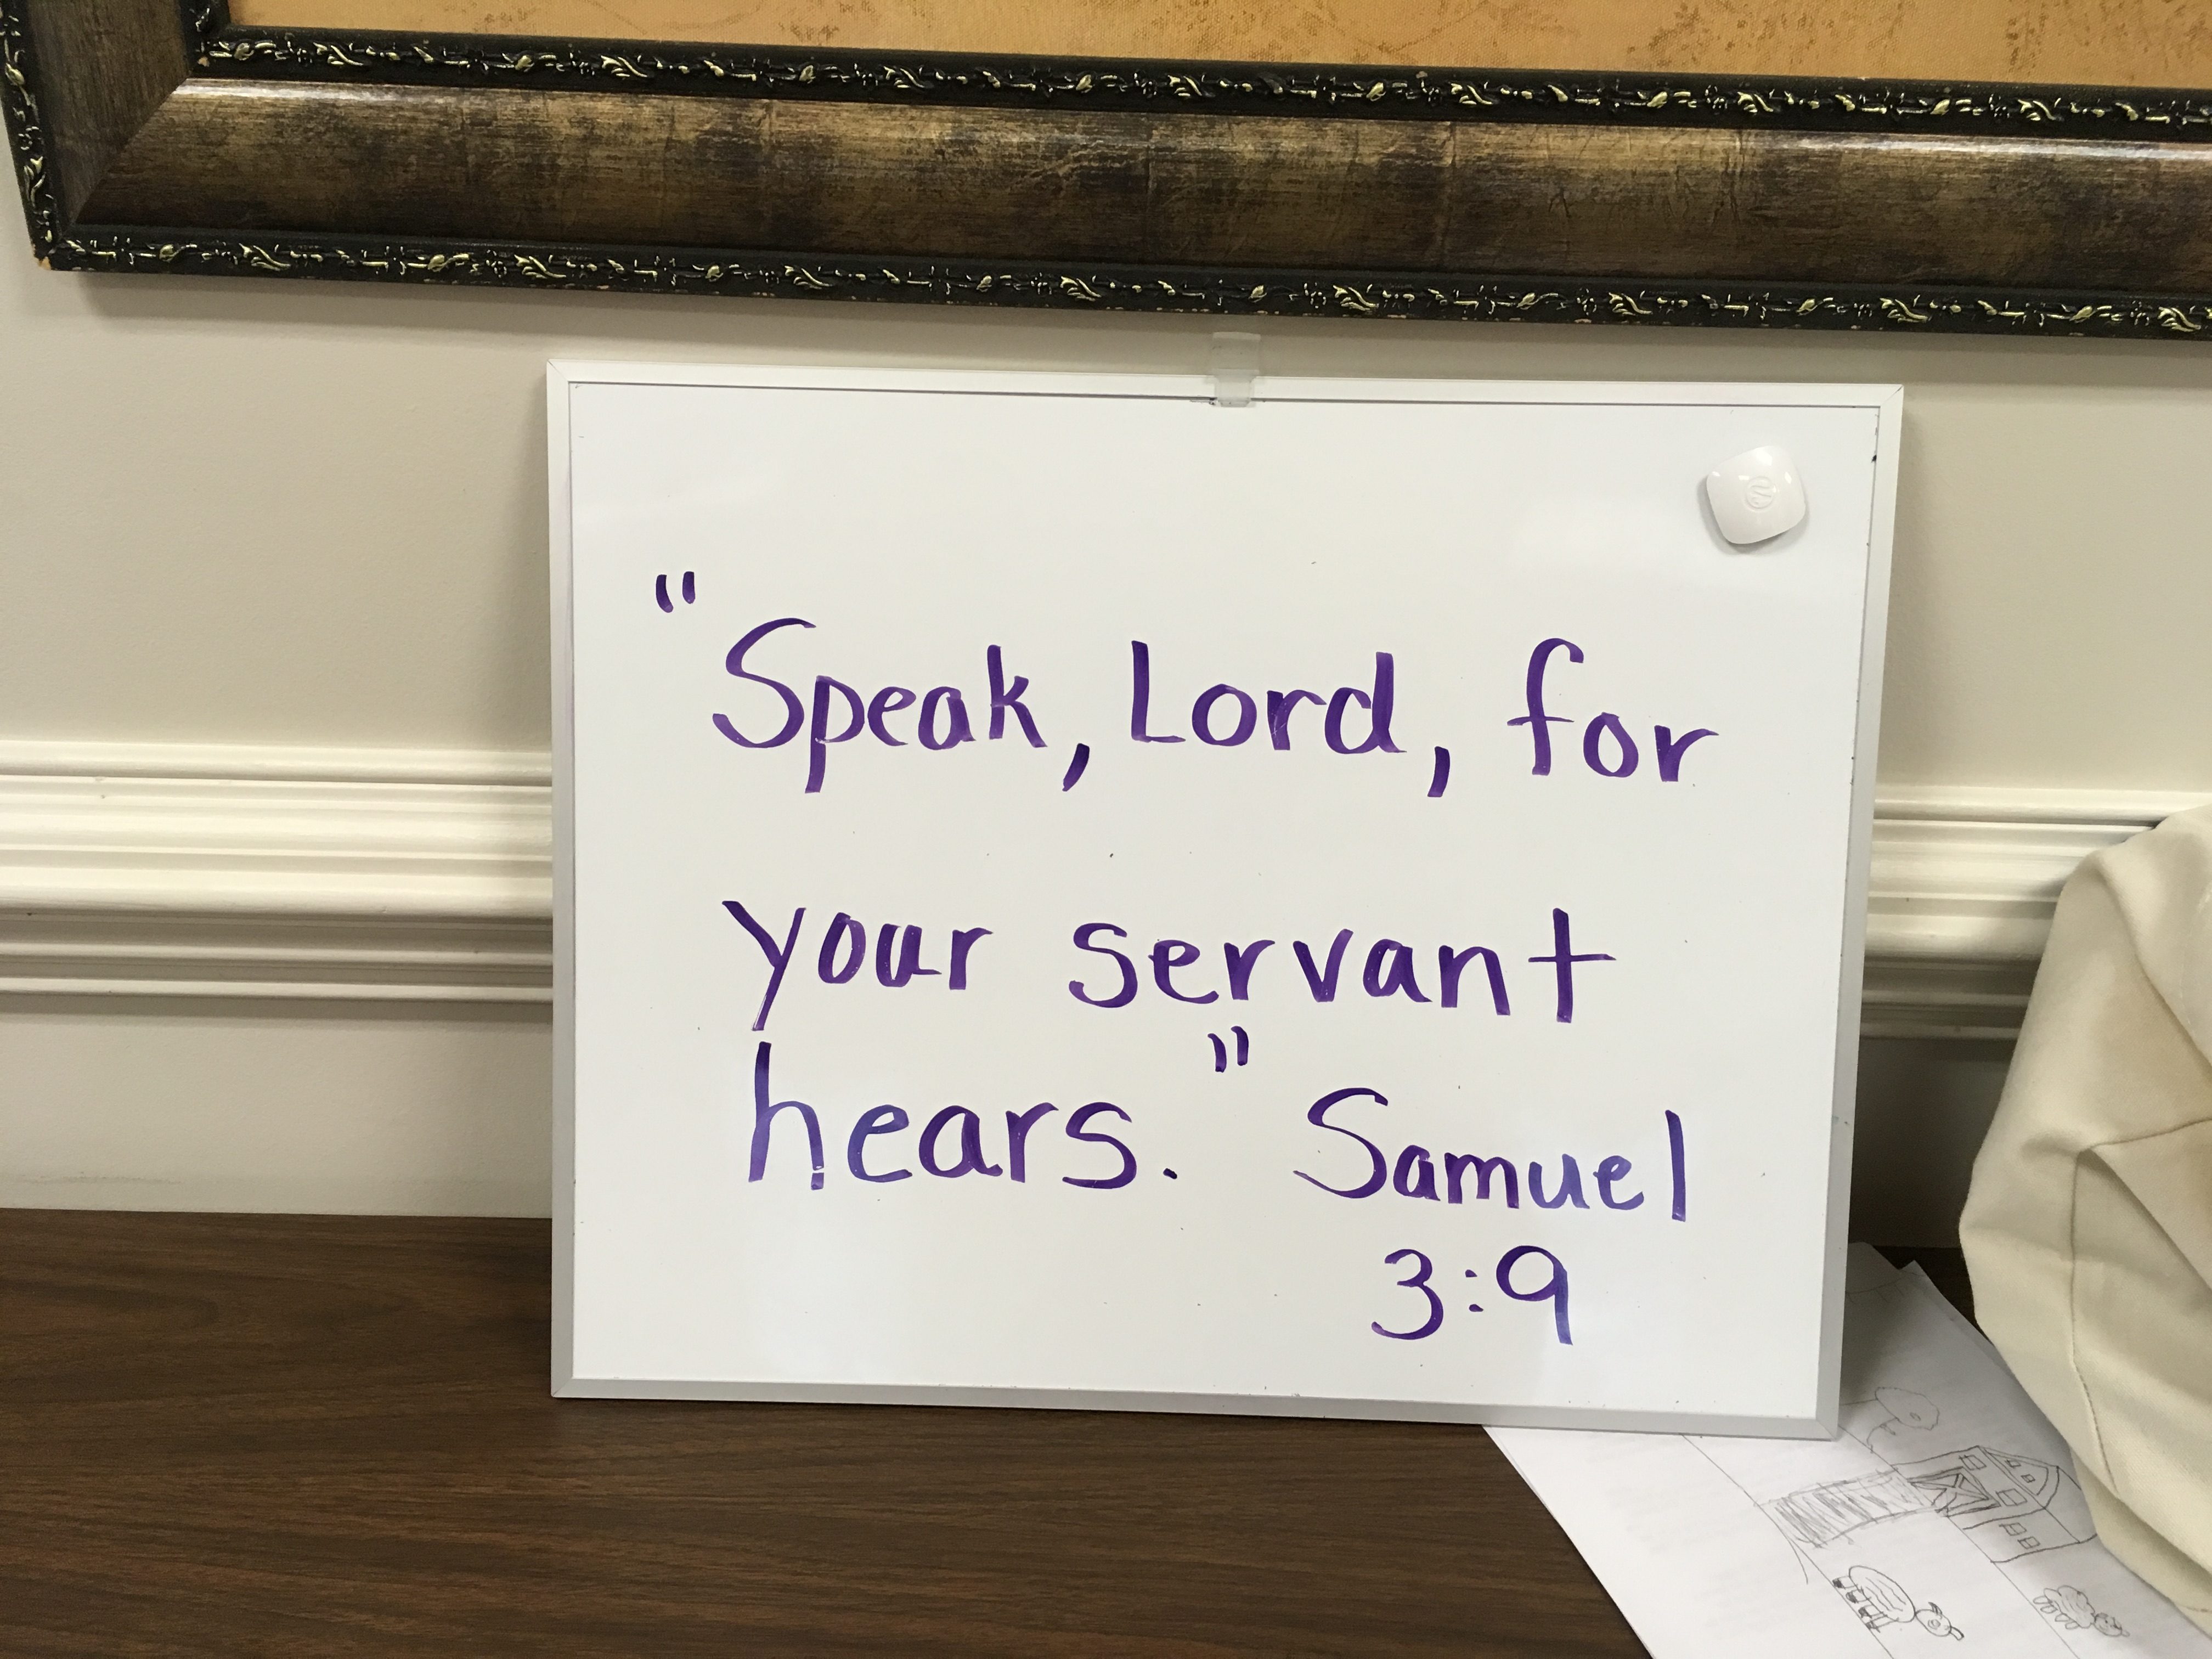 "Speak, Lord, for
your servant
hears." Samuel
3:9